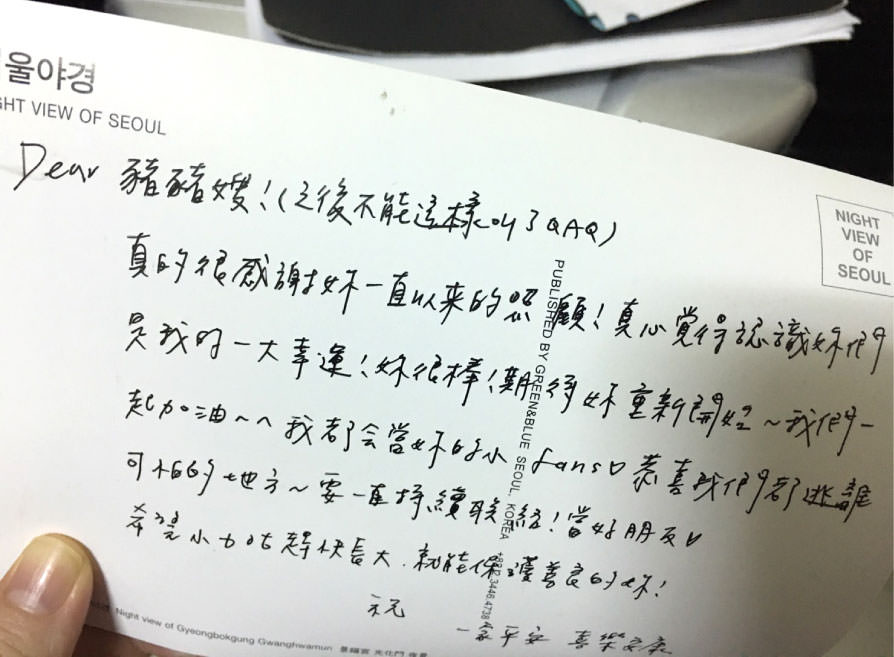 울야경
GHT VIEW OF SEOUL
NIGHT
VIEW
OF
SEOUL
Dear 豬豬嫂!(之後不能這樣叫了QAQ)
真的很感謝妳一直以來的照顧!真心覺得認識妳們
是我的一大幸運!妳很棒!期待妳重新開始~我們一
起加油~^我都会當妳的小fans♡恭喜我們都逃離
可怕的地方~要一直持續联絡!當好朋友♡
希望小加咕趕快長大.就能保護善良的妳!
祝
一家平安 喜樂安康
PUBLISHED BY GREEN&BLUE SEOUL, KOREA +822.3446.4738
Night view of Gyeongbokgung Gwanghwamun 景福宮 光化門 夜景